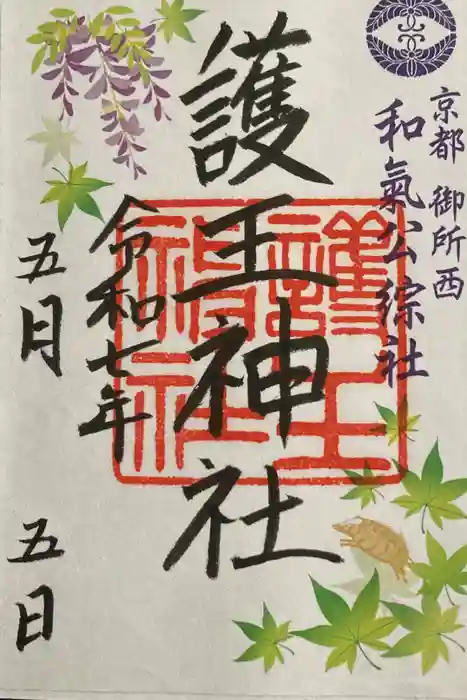 京都 御所西
和氣公綜社
護王神社
護王神社
令和七年
五月 五日